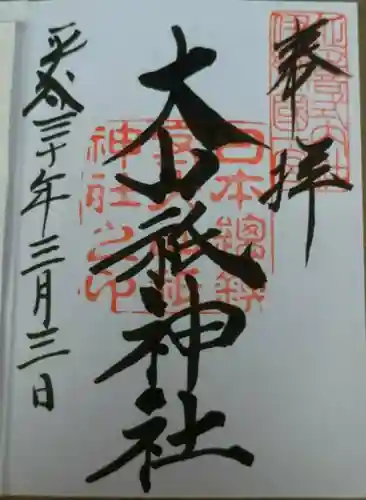 奉拝
大山祇神社
平成三十年三月三日
日本總鎮
神社之印